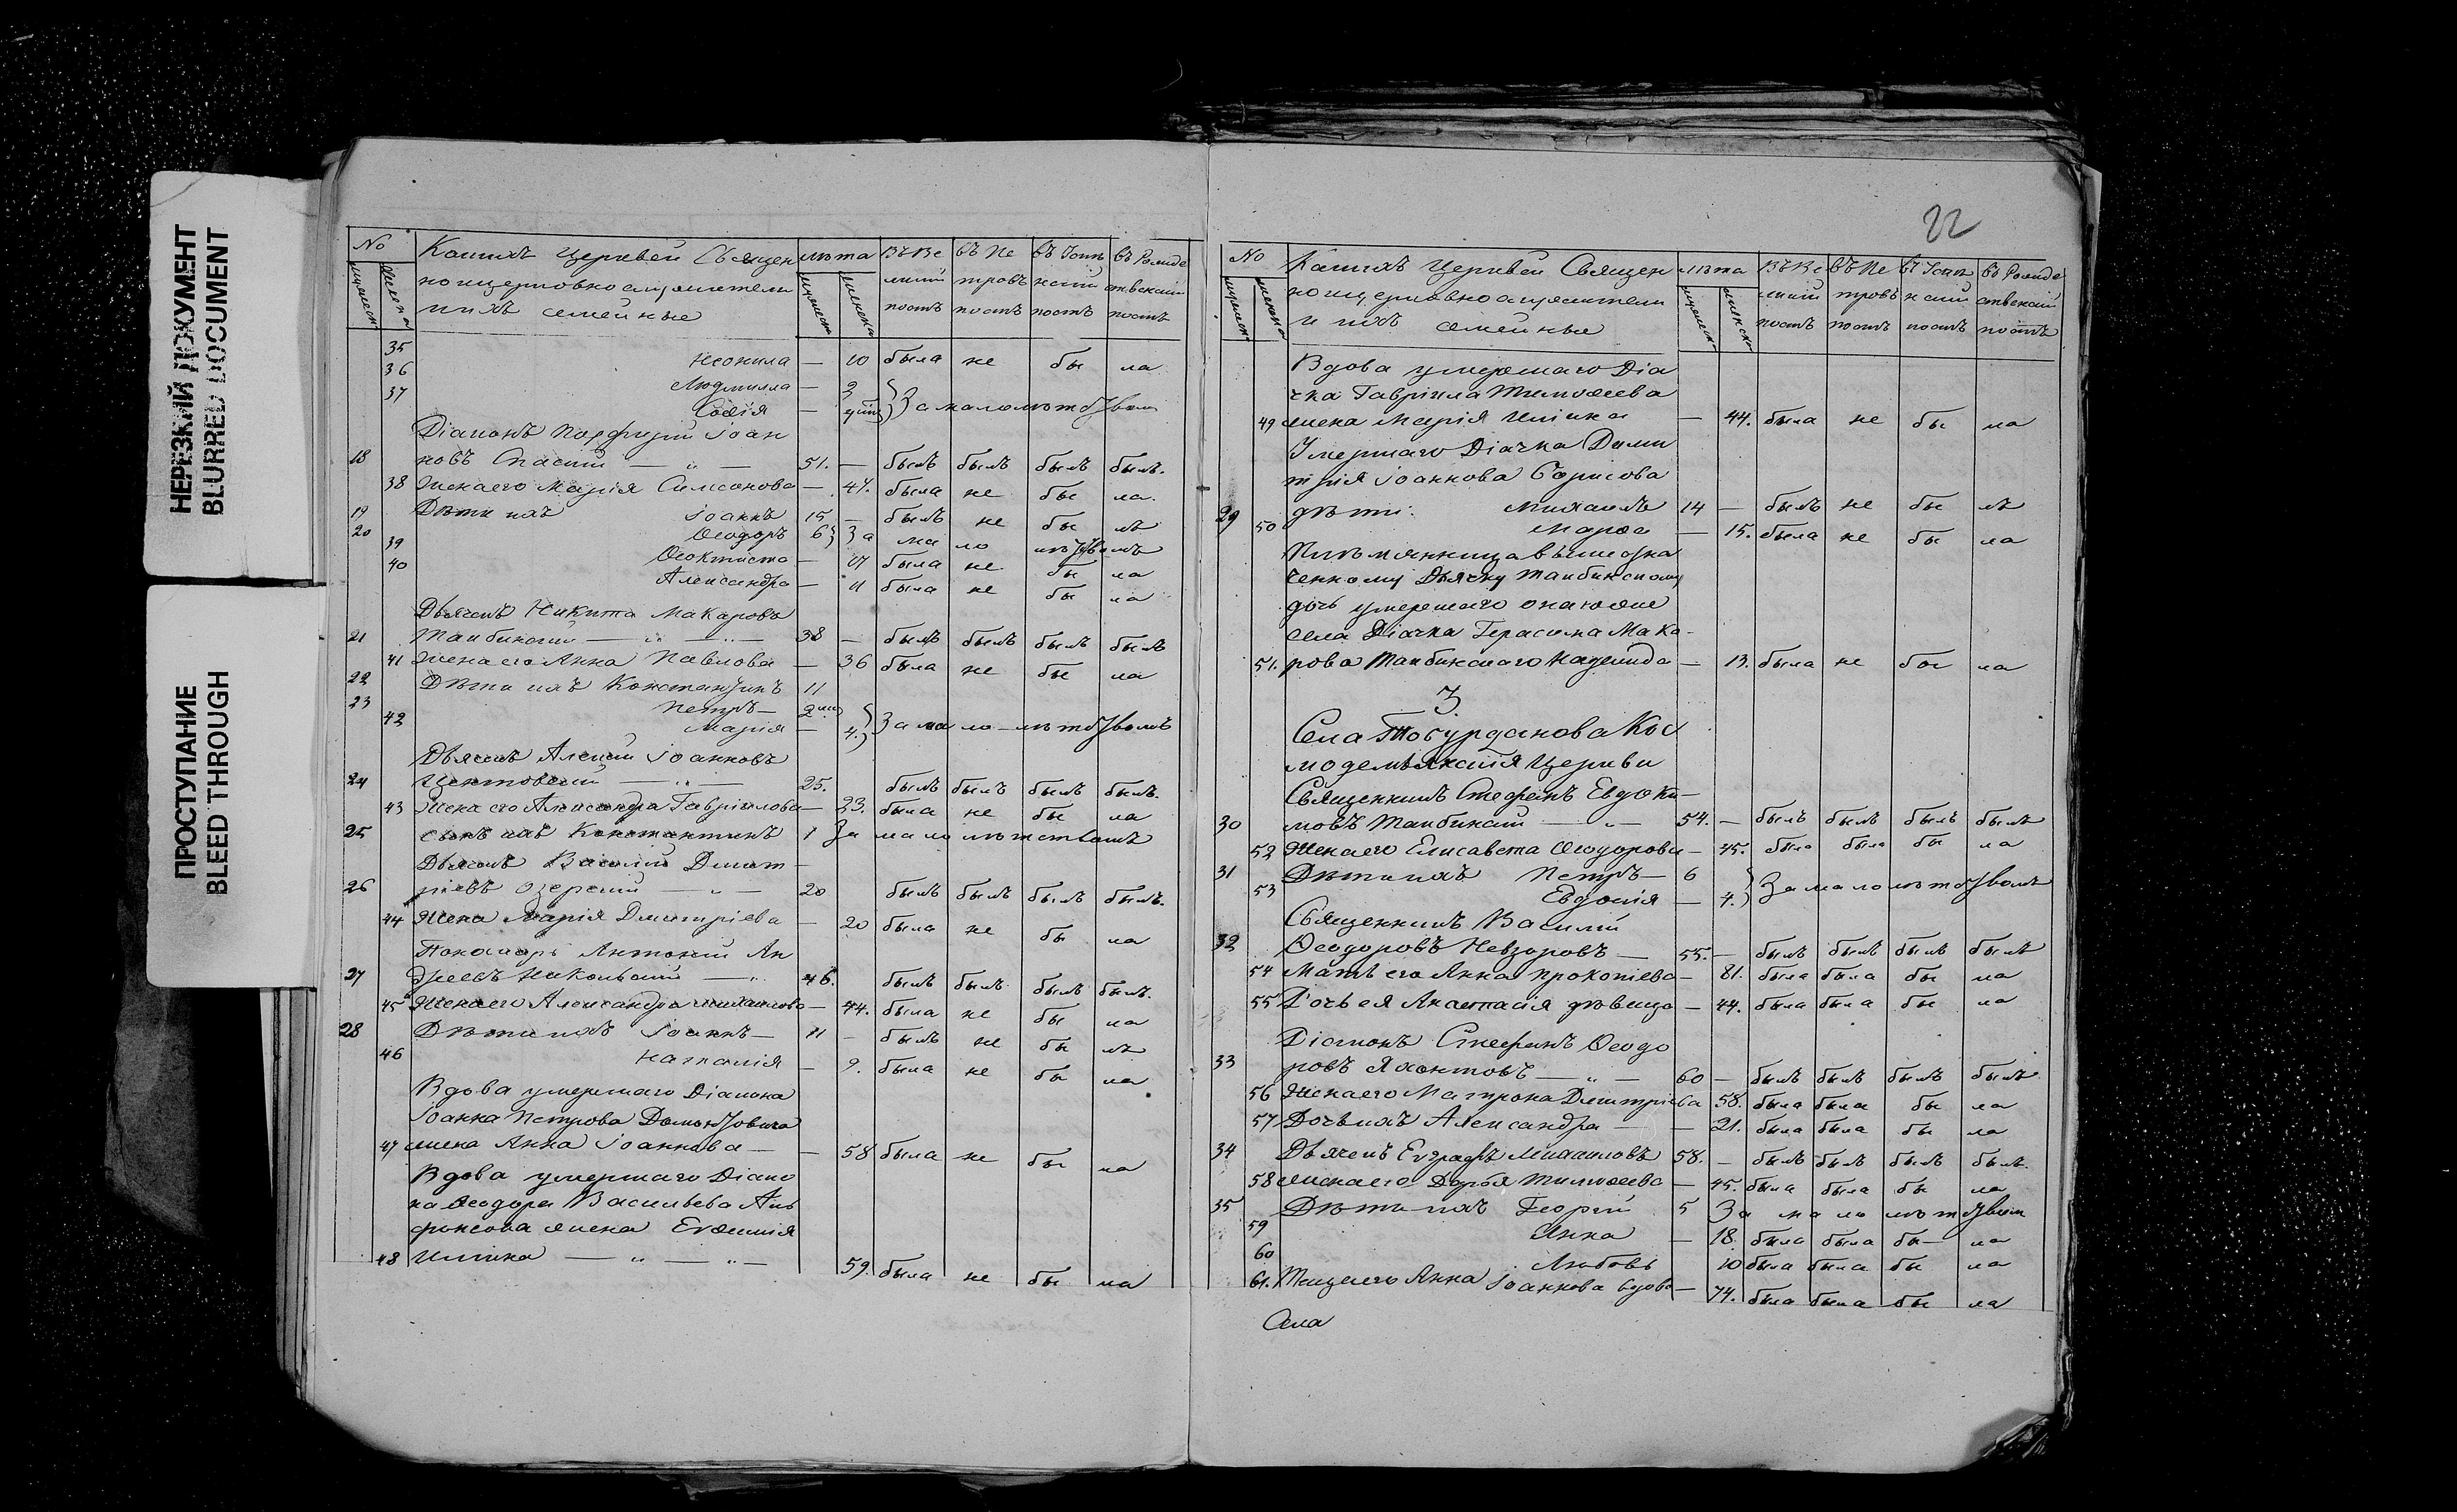 НЕРЕЗКИЙ ДОКУМЕНТ
BLURRED DOCUMENT
ПРОСТУПАНИЕ
BLEED THROUGH
№ Коихъ Церквей Священ лѣта Въ Ве въ Пе въ Успѣ въ Рожде
но церковно служители ликій тровъ нскій ственскій
и ихъ семейные постъ постъ постъ постъ
35 Неонила — 10 была не бы ла
36 Людмилла — 2
37 Софія — За малолѣтствомъ
Діаконъ Порфирій Іоан
18 новъ Спасскій — „ — 51. — былъ былъ былъ былъ.
38 Жена его Марія Симеонова — 47. была не бы ла.
19 Дѣти ихъ Іоаннъ 15 — былъ не бы лъ
20 Ѳеодоръ 6 За ма ло лѣтствомъ
39 Ѳеоктиста — 17 была не бы ла
40 Александра — 11 была не бы ла
Дьячекъ Никита Макаровъ
21 Таибинскій — „ — „ — 38 — былъ былъ былъ былъ
41 Жена его Анна Павлова — 36 была не бы ла
22 Дѣти ихъ Константинъ 11
23 Петръ —
42 Марія — 4. За мало-лѣтствомъ
Дьячекъ Алексій Іоанновъ
24 — „ — 25. былъ былъ былъ былъ.
43 Жена его Александра Гавріилова — 23. была не бы ла
25 сынъ ихъ Константинъ 1 За мало лѣтствомъ
Дьячекъ Василій Димит-
26 ріевъ Озерскій — „ — 20 былъ былъ былъ былъ.
44 Жена Марія Димитріева — 20 была не бы ла
Пономарь Антоній Ан
27 дреевъ Никольскій — „ 46. былъ былъ былъ былъ.
45 Жена его Александра Михаилова — 44. была не бы ла
28 Дѣти ихъ Іоаннъ — 11 — былъ не бы лъ
46 Наталія — 9. была не бы ла
Вдова умершаго Діакона
Іоанна Петрова
47 жена Анна Іоаннова — — 58 была не бы ла
Вдова умершаго Діако
на Ѳеодора Васильева
жена Евфимія
48 Ильина — „ — „ — 59. была не бы ла
22
№ Коихъ Церквей Священ лѣта Въ Ве въ Пе въ Успѣ въ Рожде
но церковно служители ликій тровъ нскій ственскій
и ихъ семейные постъ постъ постъ постъ
Вдова умершаго Діа
чка Гавріила Тимоѳеева
49 жена Марія Ильина — 44. была не бы ла
Умершаго Діачка Дими
трія Іоаннова Борисова
29 дѣти: Михаилъ 14 — былъ не бы лъ
50 Марѳа — 15. была не бы ла
Племянница вышеозна
ченному Дьячку Таибинскому
дочь умершаго онаго же
села Діачка Герасима Мака-
51. рова Таибинскаго Надежда — 13. была не бы ла
3.
Села Тобурданова Кос
модемьянскія Церкви
Священникъ Стефанъ Евдоки-
30 мовъ Таибинскій — „ — 54. — былъ былъ былъ былъ
52 Жена его Елисавета Ѳеодорова — 45. была была бы ла
31 Дѣти ихъ Петръ — 6
53 Евдокія — 4. За малолѣтствомъ
Священникъ Василій
32 Ѳеодоровъ Невзоровъ — 55. — былъ былъ былъ былъ
54 Мать его Анна Прокопіева — 81. была была бы ла
55 Дочь ея Анастасія дѣвица — 44. была была бы ла
Діаконъ Стефанъ Ѳеодо
33 ровъ Яхонтовъ — „ — 60 — былъ былъ былъ былъ.
56 Жена его Матрона Димитріева 58. была была бы ла
57 Дочь ихъ Александра — — 21. была была бы ла
34 Дьячекъ Евграфъ Михаиловъ 58. — былъ былъ былъ былъ.
58 жена его Дарья Тимоѳеева — 45. была была бы ла
35 Дѣти ихъ Георгій 5 За ма ло лѣтствомъ
59 Анна — 18. была была бы — ла
60 Любовь 10 была была бы ла
61. Теща его Анна Іоаннова вдова — 74. была была бы ла
Села